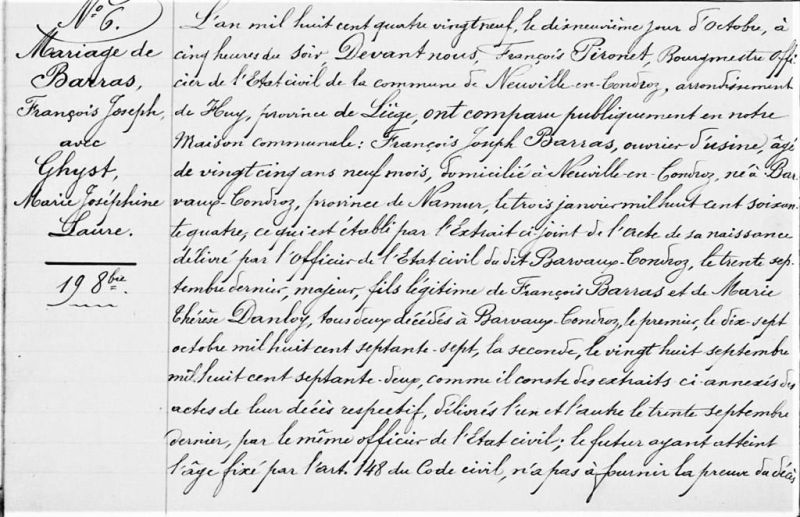 N° 6.
Mariage de
Barras,
François Joseph,
avec
Ghyst,
Marie Joséphine
Laure.
19 8bre.
L'an mil huit cent quatre vingt neuf, le dixneuvième jour d'Octobre, à
cinq heures du soir, Devant nous, François Pironet, Bourgmestre Offi-
cier de l'Etat civil de la commune de Neuville-en-Condroz, arrondissement
de Huy, province de Liège, ont comparu publiquement en notre
Maison communale: François Joseph Barras, ouvrier d'usine, âgé
de vingt cinq ans neuf mois, domicilié à Neuville-en-Condroz, né à Bar-
vaux-Condroz, province de Namur, le trois janvier mil huit cent soixan-
te quatre, ce qui est établi par l'Extrait ci-joint de l'acte de sa naissance
délivré par l'Officier de l'Etat civil du dit Barvaux-Condroz, le trente sep-
tembre dernier, majeur, fils légitime de François Barras et de Marie
Thérèse Danloy, tous deux décédés à Barvaux-Condroz, le premier, le dix-sept
octobre mil huit cent septante-sept, la seconde, le vingt huit septembre
mil huit cent septante-deux, comme il conste des extraits ci-annexés des
actes de leur décès respectif, délivrés l'un et l'autre le trente septembre
dernier, par le même officier de l'Etat civil; le futur ayant atteint
l'âge fixé par l'art. 148 du Code civil, n'a pas à fournir la preuve du décès